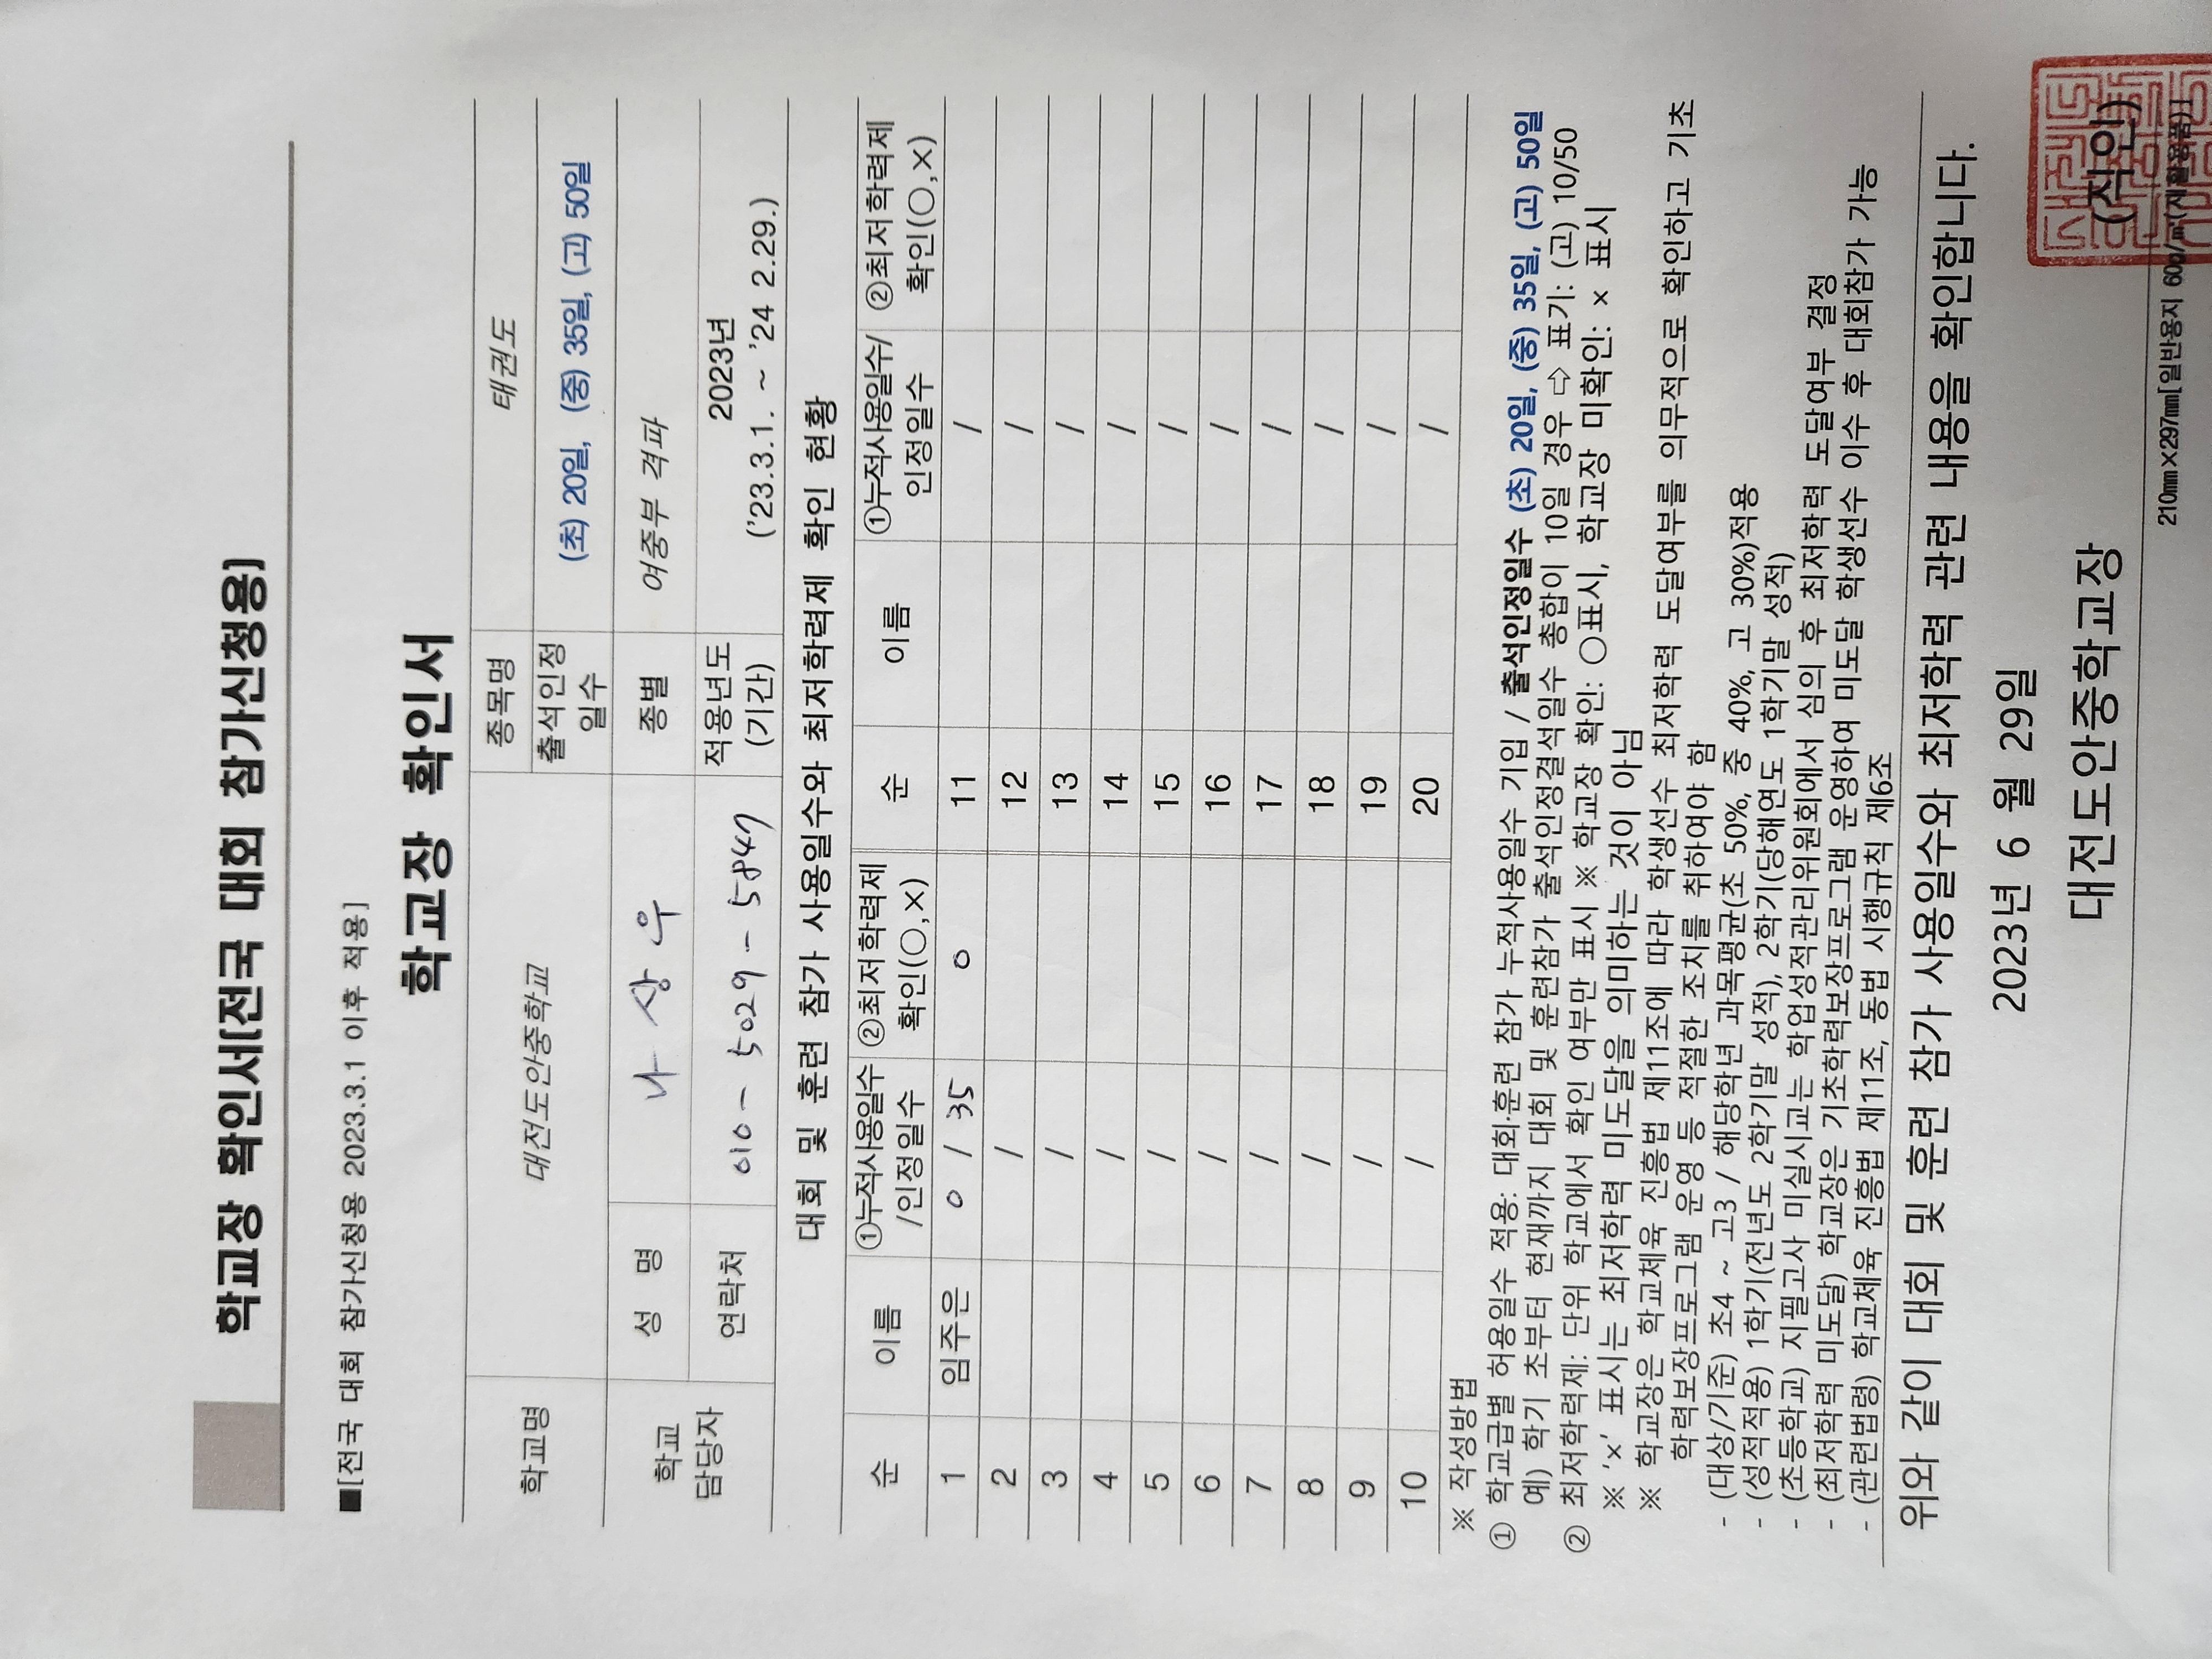 학교장 확인서[전국 대회 참가신청용]
■[전국 대회 참가신청용 2023.3.1 이후 적용]
학교장 확인서
학교명 대전도안중학교 종목명 태권도
출석인정 일수 (초) 20일, (중) 35일, (고) 50일
학교 담당자 성 명 나 상 우 종별 여중부 격파
연락처 010 - 5029 - 5847 적용년도 (기간) 2023년 ('23.3.1. ~ '24 2.29.)
대회 및 훈련 참가 사용일수와 최저학력제 확인 현황
순 이름 ①누적사용일수 /인정일수 ②최저학력제 확인(○,×) 순 이름 ①누적사용일수/ 인정일수 ②최저학력제 확인(○,×)
1 임주은 0 / 35 0 11 /
2 / 12 /
3 / 13 /
4 / 14 /
5 / 15 /
6 / 16 /
7 / 17 /
8 / 18 /
9 / 19 /
10 / 20 /
※ 작성방법
① 학교급별 허용일수 적용: 대회·훈련 참가 누적사용일수 기입 / 출석인정일수 (초) 20일, (중) 35일, (고) 50일
예) 학기 초부터 현재까지 대회 및 훈련참가 출석인정결석일수 총합이 10일 경우 ⇨ 표기: (고) 10/50
② 최저학력제: 단위 학교에서 확인 여부만 표시 ※ 학교장 확인: ○표시, 학교장 미확인: × 표시
※ '×' 표시는 최저학력 미도달을 의미하는 것이 아님
※ 학교장은 학교체육 진흥법 제11조에 따라 학생선수 최저학력 도달여부를 의무적으로 확인하고 기초
학력보장프로그램 운영 등 적절한 조치를 취하여야 함
- (대상/기준) 초4 ~ 고3 / 해당학년 과목평균(초 50%, 중 40%, 고 30%)적용
- (성적적용) 1학기(전년도 2학기말 성적), 2학기(당해연도 1학기말 성적)
- (초등학교) 지필고사 미실시교는 학업성적관리위원회에서 심의 후 최저학력 도달여부 결정
- (최저학력 미도달) 학교장은 기초학력보장프로그램 운영하여 미도달 학생선수 이수 후 대회참가 가능
- (관련법령) 학교체육 진흥법 제11조, 동법 시행규칙 제6조
위와 같이 대회 및 훈련 참가 사용일수와 최저학력 관련 내용을 확인합니다.
2023년 6 월 29일
대전도안중학교장 (직인)
210㎜×297㎜[일반용지 60g/㎡(재활용품)]